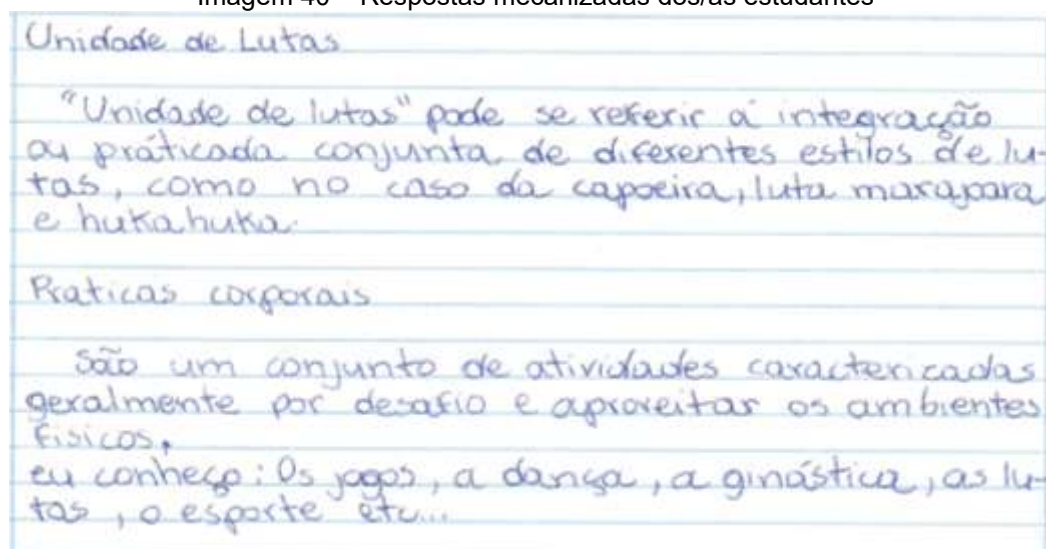 Imagem 40 – Respostas mecanizadas dos/as estudantes
Unidade de Lutas
"Unidade de lutas" pode se referir a integração
ou práticada conjunta de diferentes estilos de lu-
tas, como no caso da capoeira, luta marajoara
e huka huka.
Praticas corporais
São um conjunto de atividades caracterizadas
geralmente por desafio e aproveitar os ambientes
físicos.
eu conheço: Os jogos, a dança, a ginástica, as lu-
tas, o esporte etc...